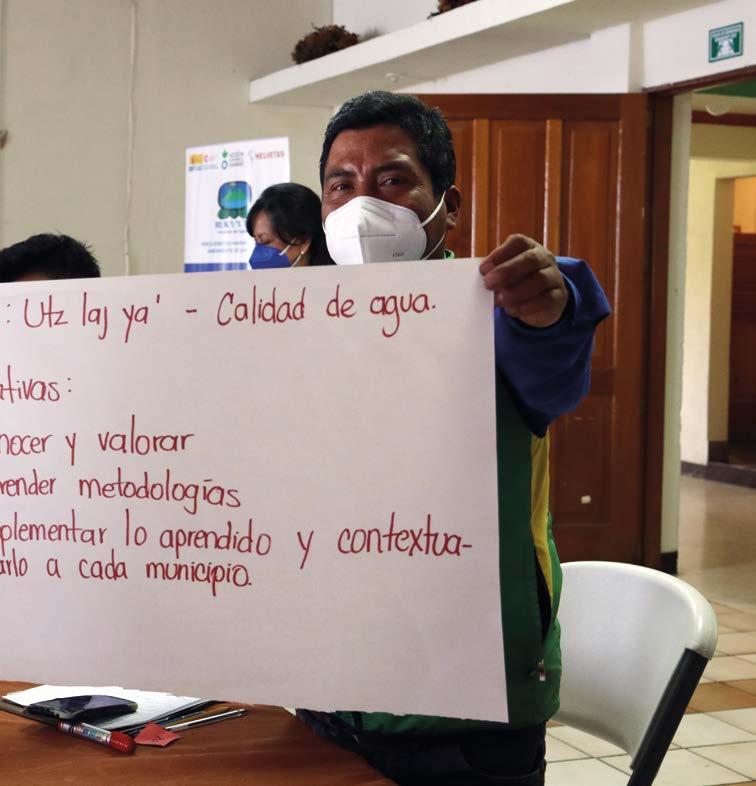 HELVETAS
: Utz laj ya' - Calidad de agua.
ativas:
nocer y valorar
render metodologías
plementar lo aprendido y contextua-
arlo a cada municipio.